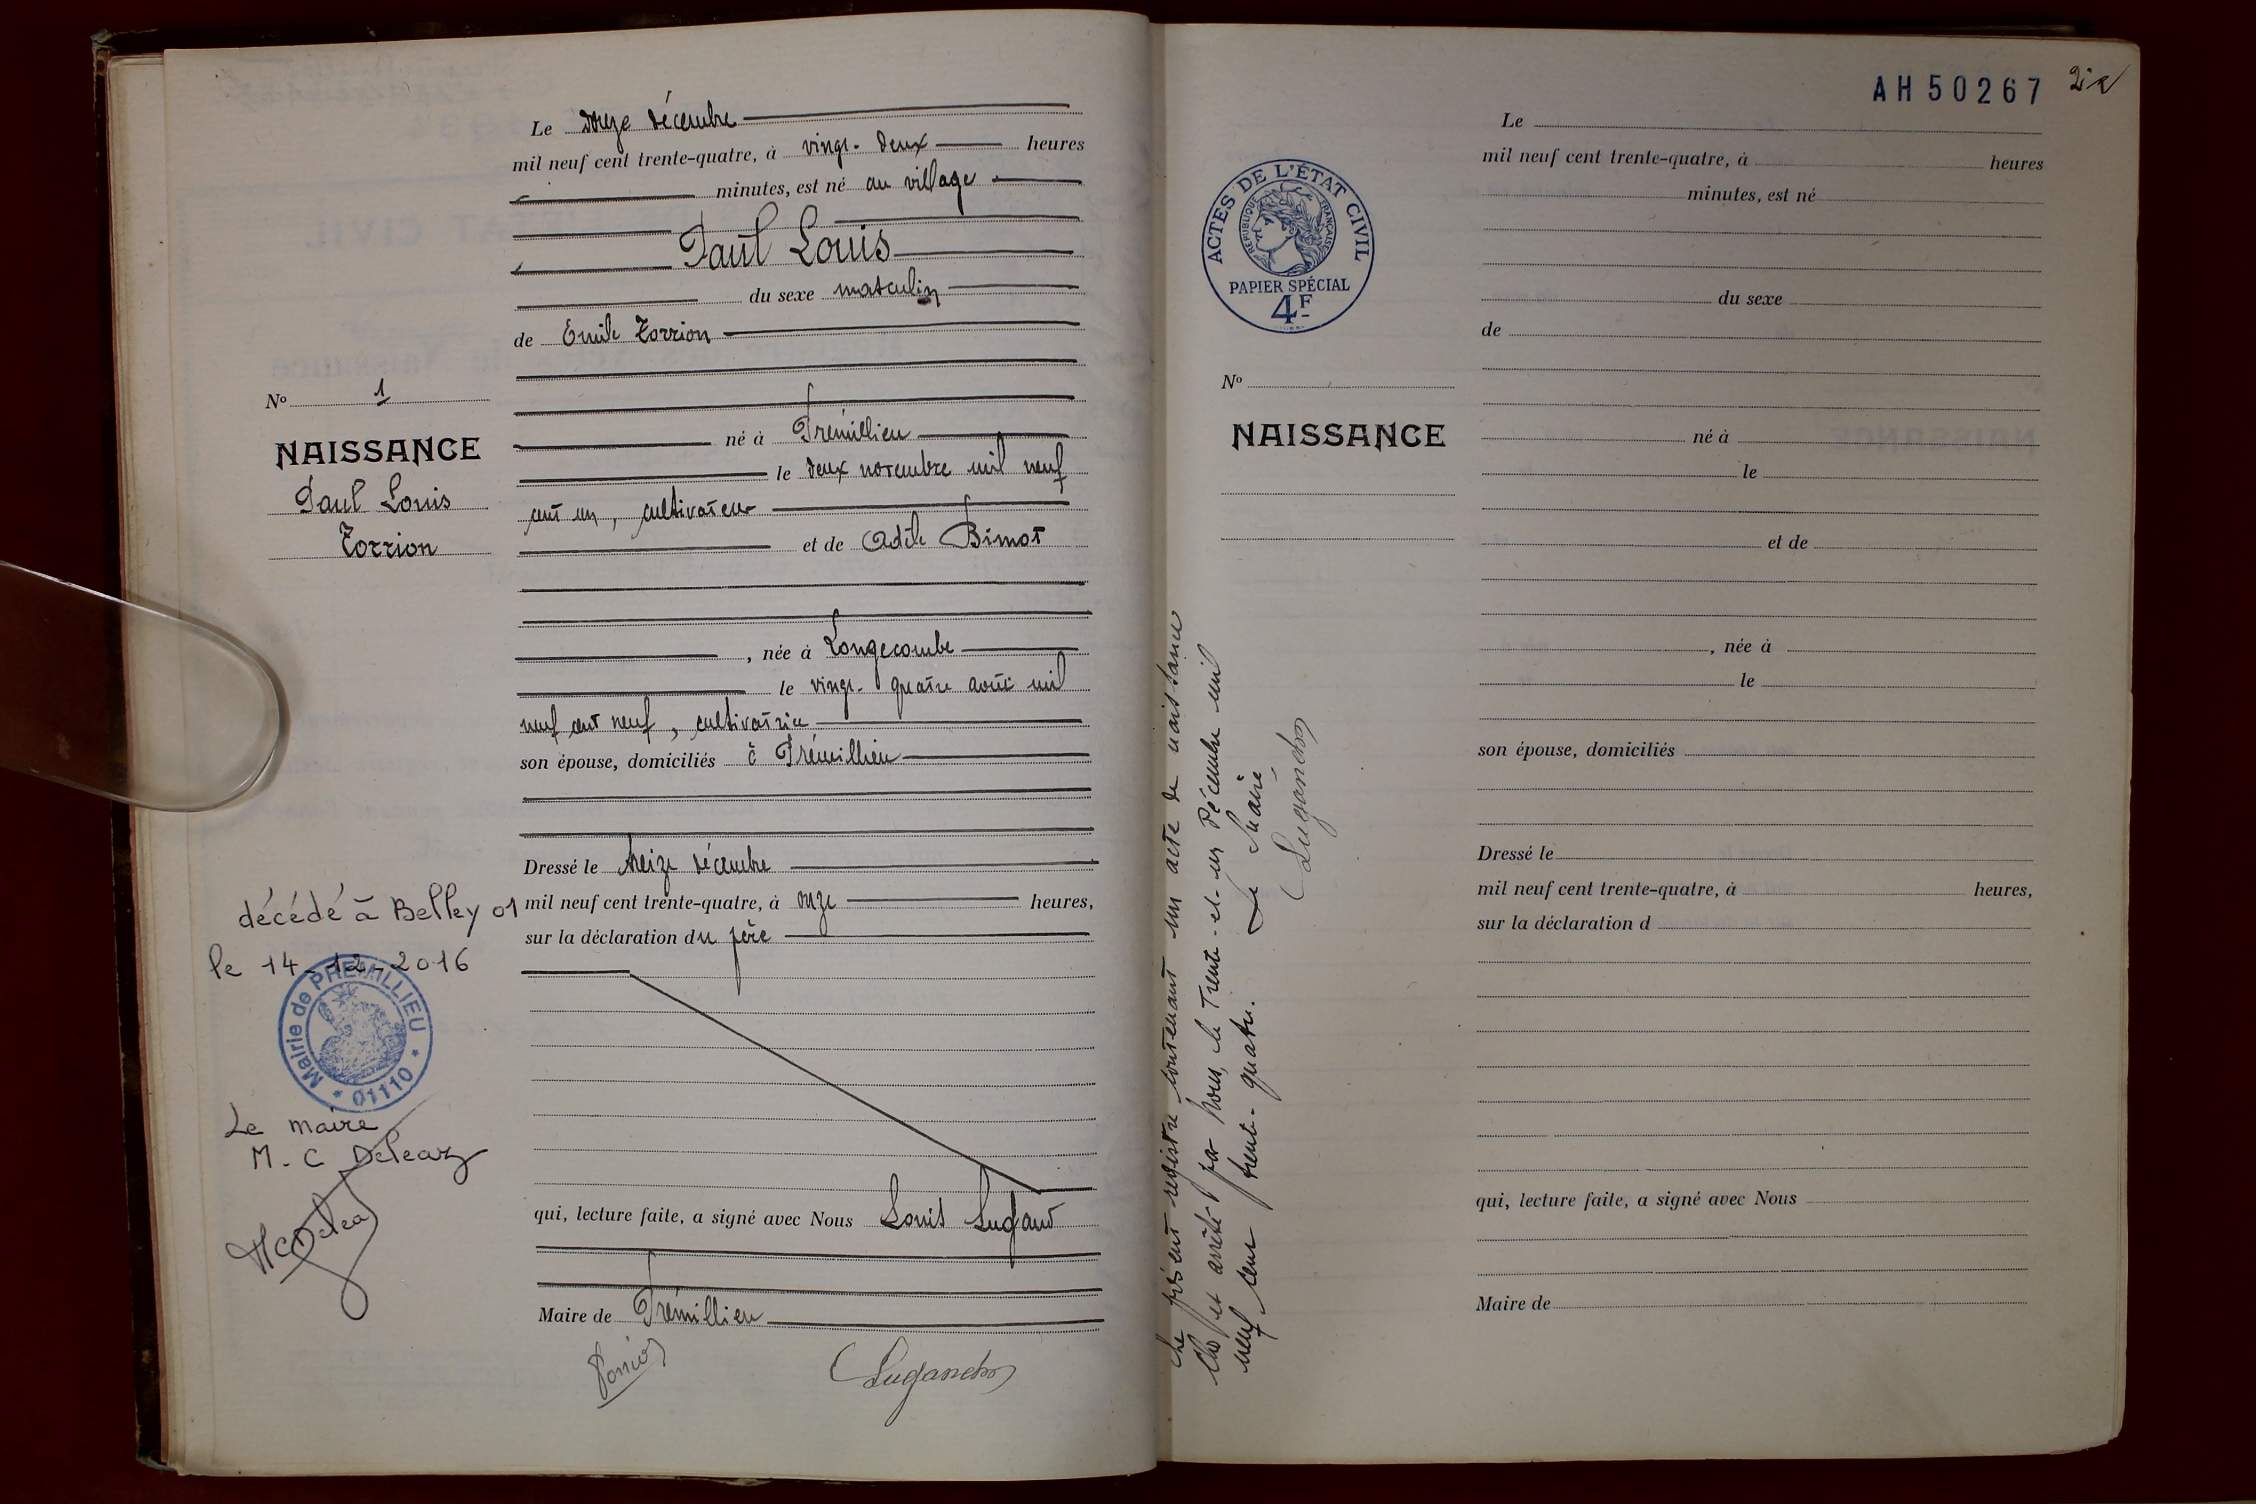 Le douze décembre
mil neuf cent trente-quatre, à vingt-deux heures
minutes, est né au village
Paul Louis
du sexe masculin
de Emile Torrion
né à Prémillieu
le deux novembre mil neuf
cent un, cultivateur
et de Adèle Bimot
, née à Longecombe
le vingt-quatre août mil
neuf cent neuf, cultivatrice
son épouse, domiciliés à Prémillieu
Dressé le treize décembre
mil neuf cent trente-quatre, à onze heures,
sur la déclaration du père
qui, lecture faite, a signé avec Nous Louis Lugand
Maire de Prémillieu
Nº 1
NAISSANCE
Paul Louis
Torrion
décédé à Belley 01
le 14-12-2016
Mairie de PREMILLIEU
* 01110 *
Le maire
M.C Deleaz
AH50267
ACTES DE L'ÉTAT CIVIL
RÉPUBLIQUE FRANÇAISE
PAPIER SPÉCIAL
4F
Nº
NAISSANCE
Le
mil neuf cent trente-quatre, à heures
minutes, est né
du sexe
de
né à
le
et de
, née à
le
son épouse, domiciliés
Dressé le
mil neuf cent trente-quatre, à heures,
sur la déclaration d
qui, lecture faite, a signé avec Nous
Maire de
présent registre contenant un acte de naissance
Clos et arrêté par Nous, le Trente-et-un Décembre mil
neuf cent trente-quatre. Le Maire